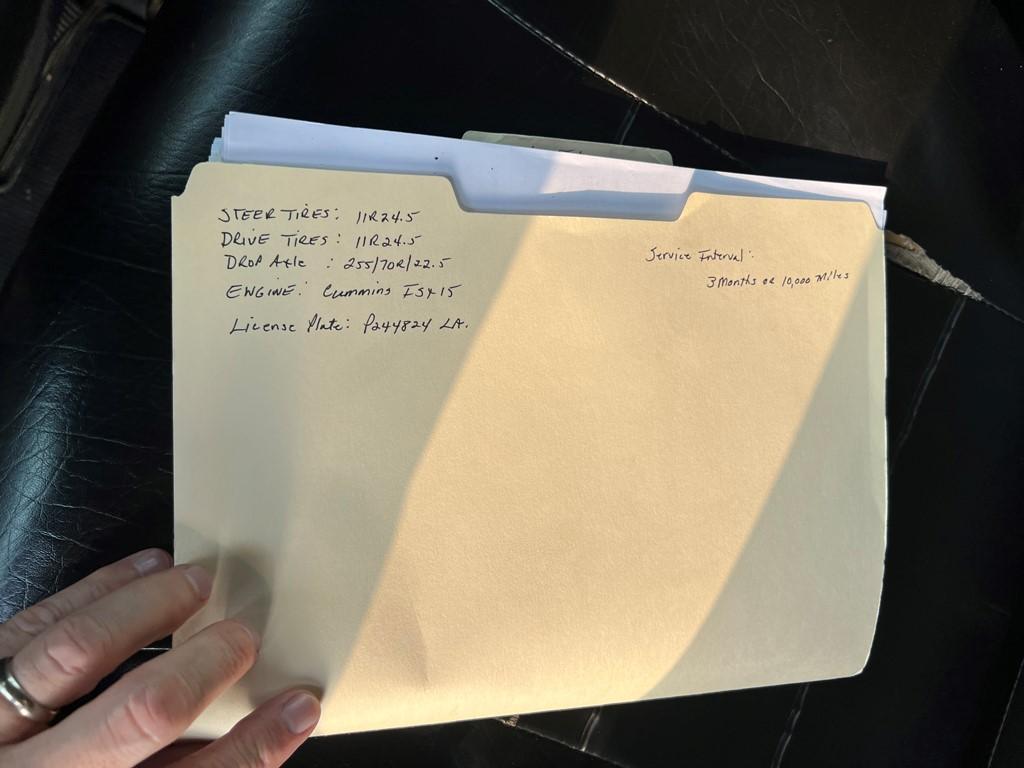 STEER TIRES: 11R24.5
DRIVE TIRES: 11R24.5
DROP Axle : 255/70R/22.5
ENGINE: Cummins ISX15
License Plate: P244824 LA.
Service Interval:
3 Months or 10,000 Miles